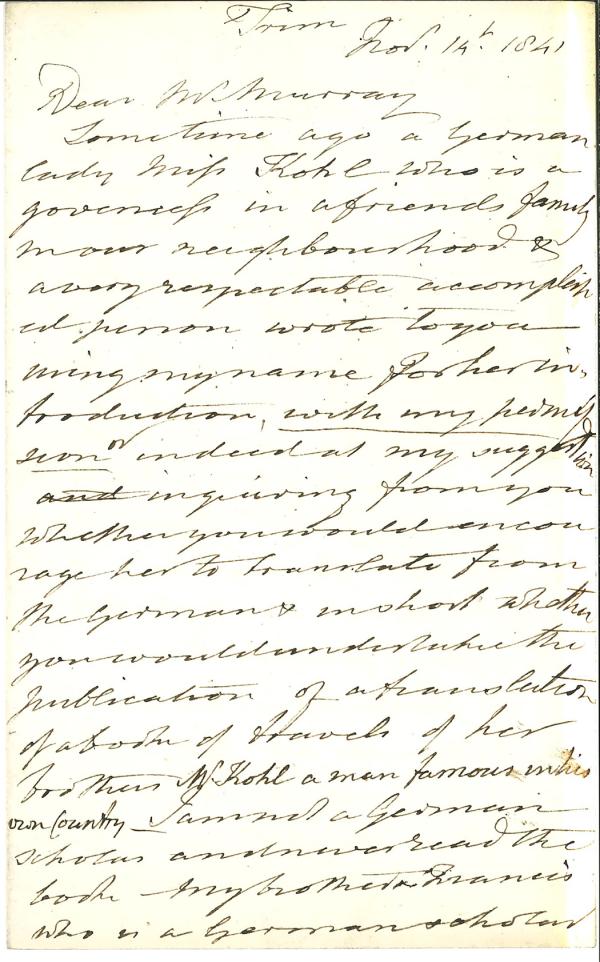 Trim
Nov. 14th. 1841
Dear Mr Murray
Sometime ago a German
lady Miss Kohl who is a
governess in a friends family
in our neighbourhood &
a very respectable accomplish
ed person wrote to you
using my name for her in-
troduction, with my permis
sion or indeed at my suggestion
and inquiring from you
whether you would encou
rage her to translate from
the German & in short whether
you would undertake the
publication of a translation
of a book of travels of her
brothers Mr Kohl a man famous in his
own Country – I am not a German
scholar and never read the
book – My brother Francis
who is a German scholar